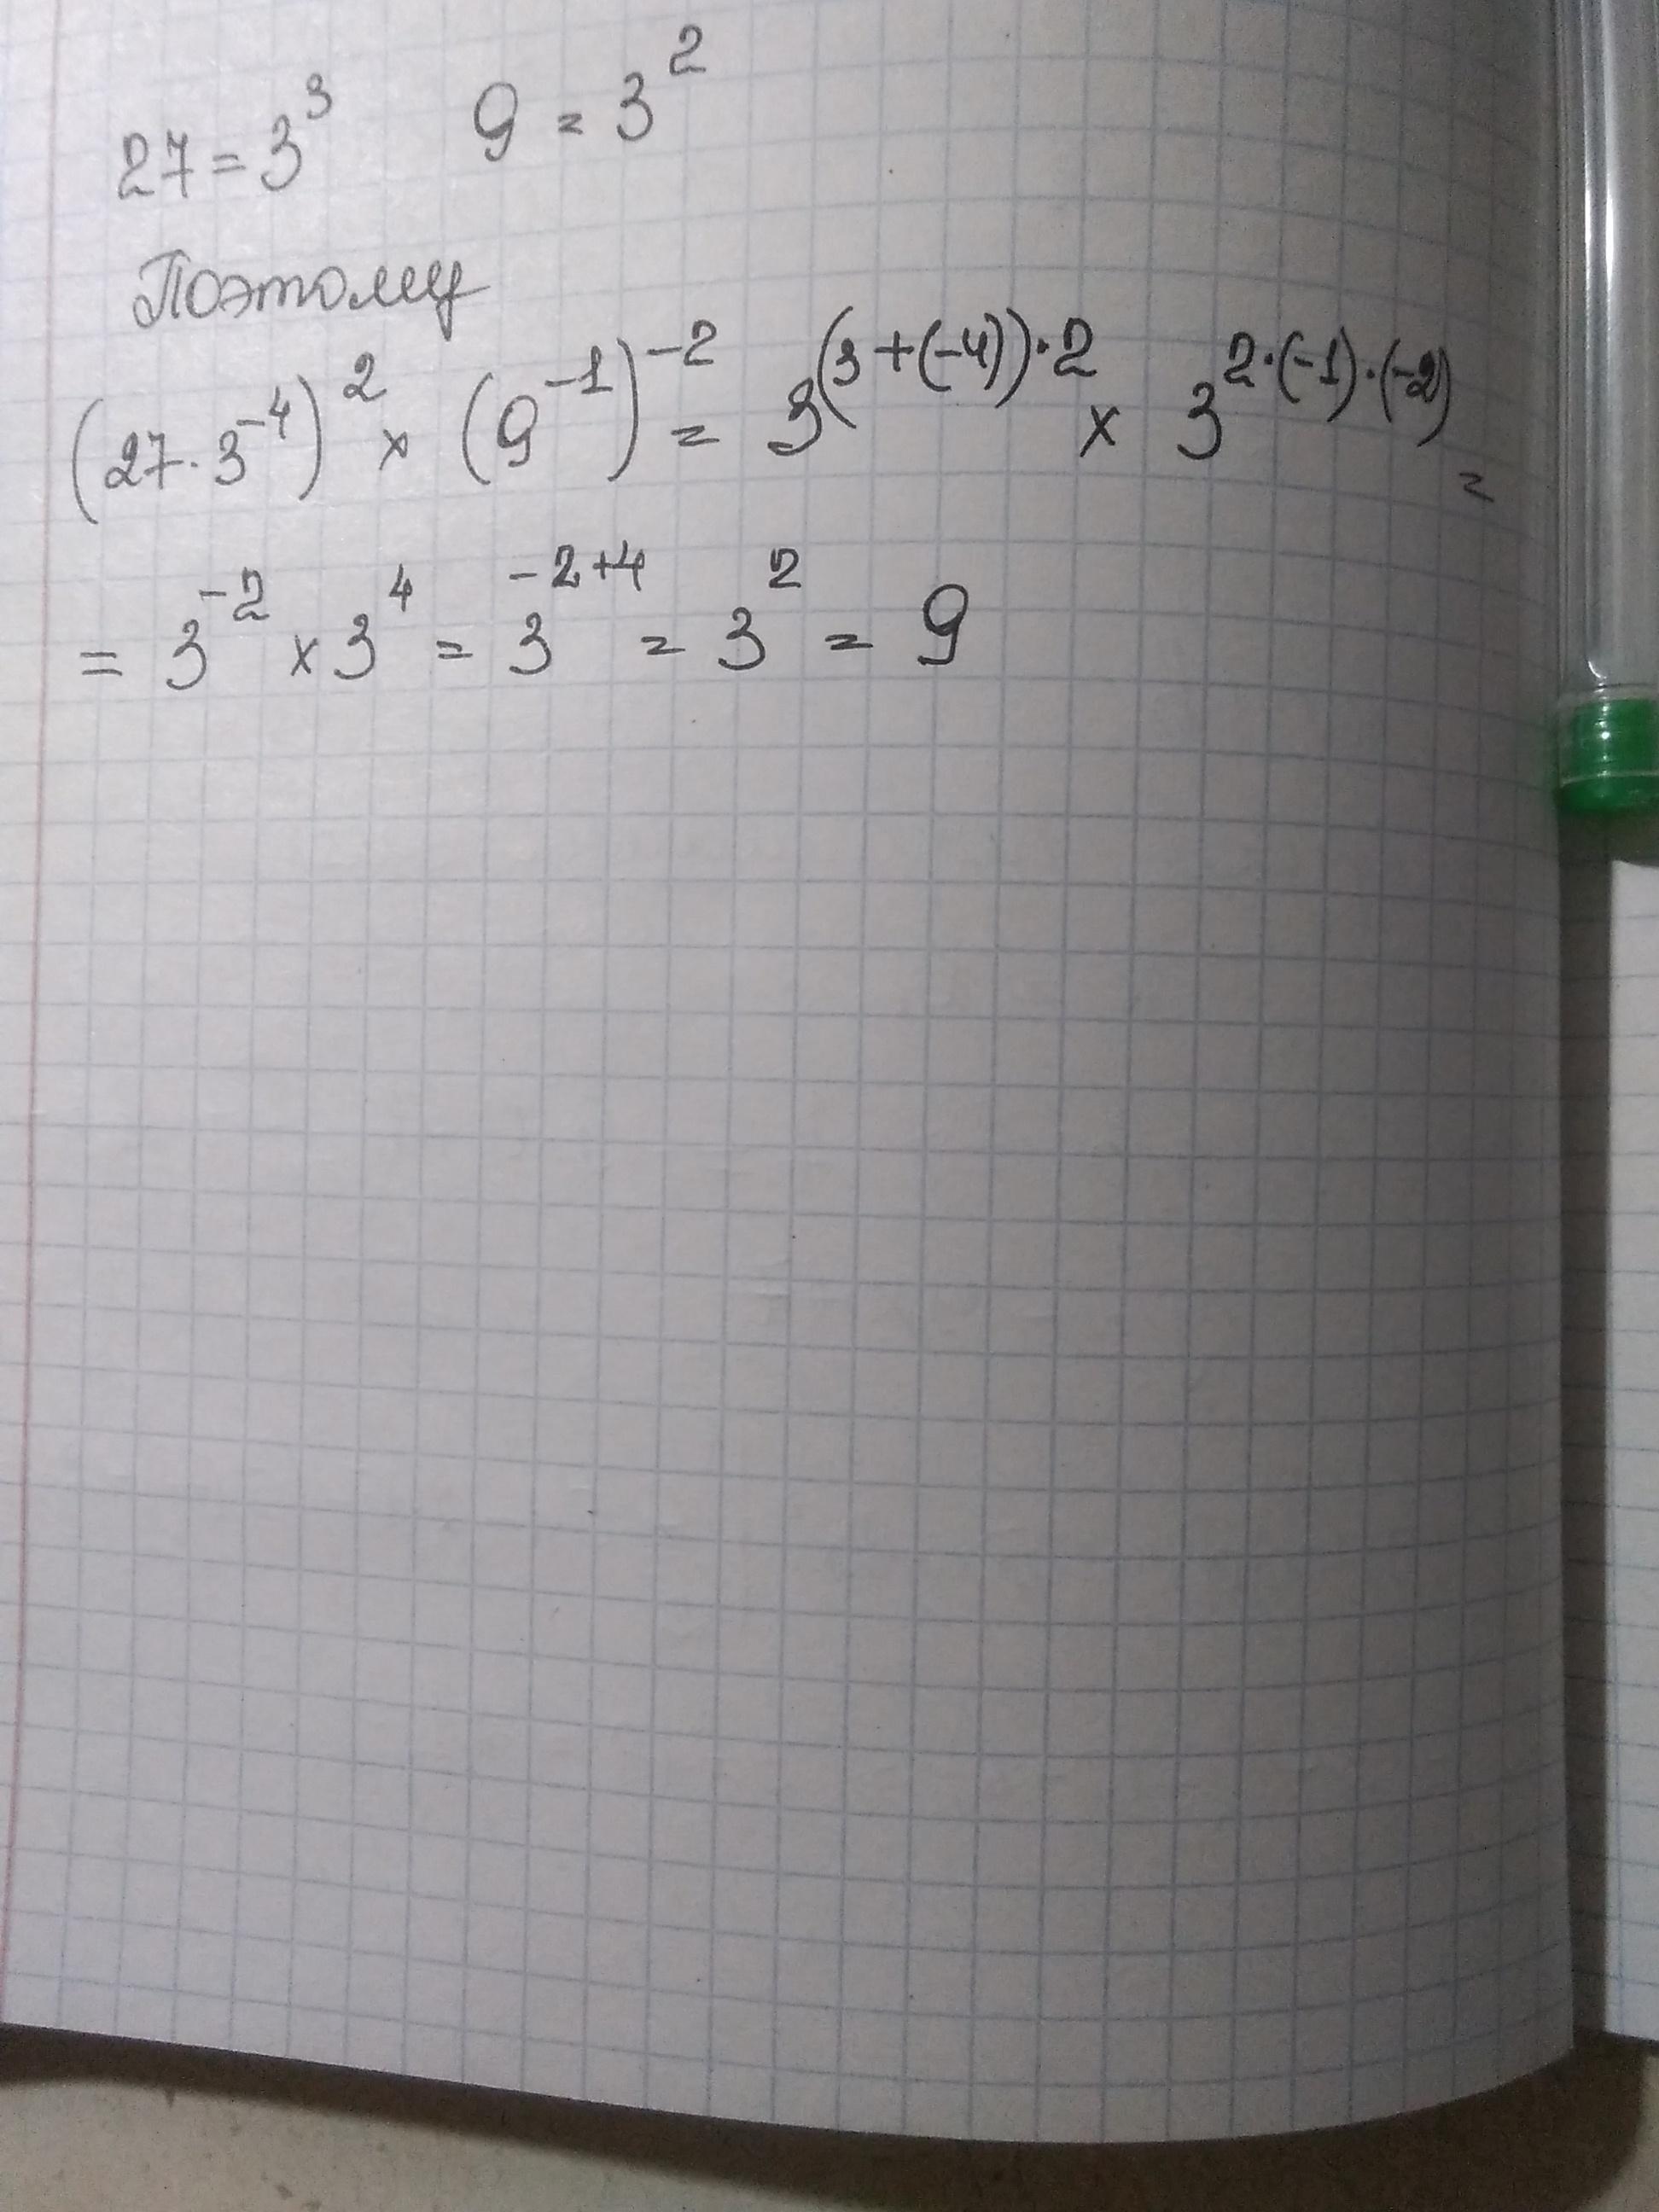 27 = 3³    9 = 3²
Поэтому
(27 · 3⁻⁴)² × (9⁻¹)⁻² = 3^((3+(-4))·2) × 3^(2·(-1)·(-2)) =
= 3⁻² × 3⁴ = 3⁻²⁺⁴ = 3² = 9